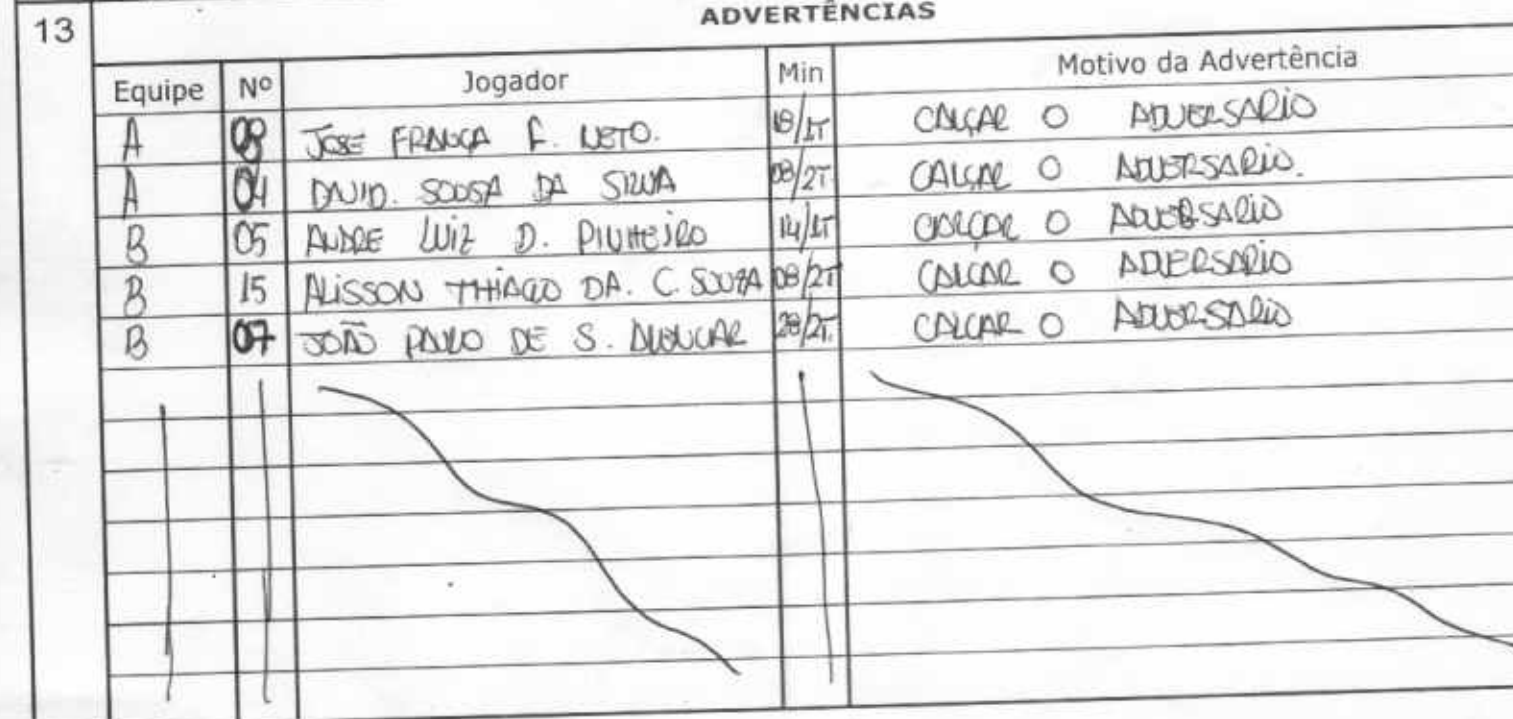 13
ADVERTÊNCIAS
Equipe Nº Jogador Min Motivo da Advertência
A 08 JOSE FRANÇA F. NETO. 18/1T CALÇAR O ADVERSARIO
A 04 DAVID. SOUSA DA SILVA 08/2T CALÇAR O ADVERSARIO.
B 05 ANDRE LUIZ D. PINHEIRO 14/1T CALÇAR O ADVERSARIO
B 15 ALISSON THIAGO DA. C. SOUZA 08/2T CALÇAR O ADVERSARIO
B 07 JOÃO PAULO DE S. ALENCAR 28/2T. CALCAR O ADVERSARIO